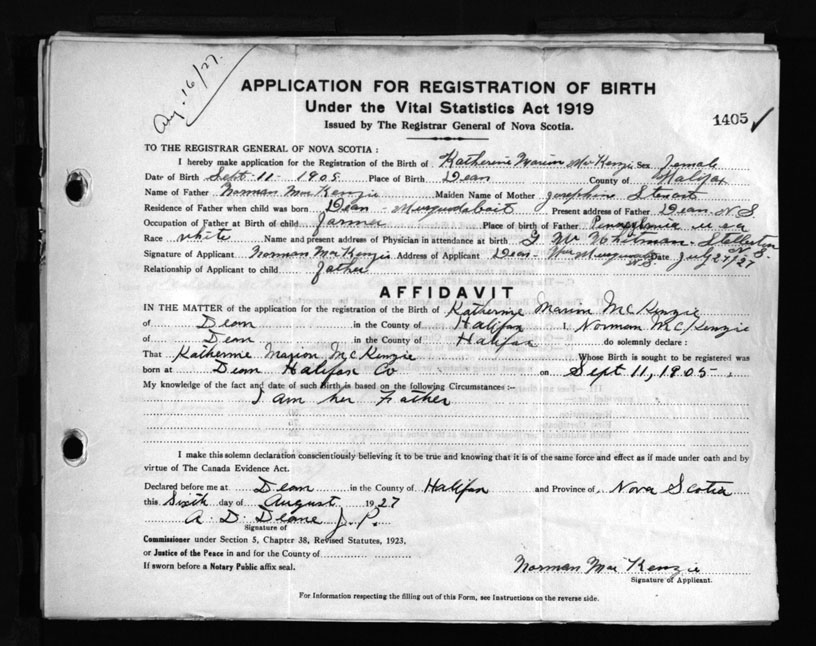 Aug. 16/27.
APPLICATION FOR REGISTRATION OF BIRTH
Under the Vital Statistics Act 1919
1405 ✓
Issued by The Registrar General of Nova Scotia.
TO THE REGISTRAR GENERAL OF NOVA SCOTIA :
I hereby make application for the Registration of the Birth of Katherine Marion McKenzie Sex Female
Date of Birth Sept. 11 - 1905 Place of Birth Dean County of Halifax
Name of Father Norman MacKenzie Maiden Name of Mother Josephine Stewart
Residence of Father when child was born Dean - Musquodoboit Present address of Father Dean N.S.
Occupation of Father at Birth of child farmer Place of birth of Father Pennsylvania U.S.A
Race white Name and present address of Physician in attendance at birth Whitman - Stellarton N.S.
Signature of Applicant Norman MacKenzie Address of Applicant Dean - N.S. Date July 27/27
Relationship of Applicant to child father
AFFIDAVIT
IN THE MATTER of the application for the registration of the Birth of Katherine Marion McKenzie
of Dean in the County of Halifax I, Norman McKenzie
of Dean in the County of Halifax do solemnly declare :
That Katherine Marion McKenzie Whose Birth is sought to be registered was
born at Dean Halifax Co on Sept 11, 1905
My knowledge of the fact and date of such Birth is based on the following Circumstances :-
I am her Father
I make this solemn declaration conscientiously believing it to be true and knowing that it is of the same force and effect as if made under oath and by
virtue of The Canada Evidence Act.
Declared before me at Dean in the County of Halifax and Province of Nova Scotia
this Sixth day of August 1927
A D Deane J. P.
Signature of
Commissioner under Section 5, Chapter 38, Revised Statutes, 1923,
or Justice of the Peace in and for the County of
If sworn before a Notary Public affix seal.
Norman MacKenzie
Signature of Applicant.
For Information respecting the filling out of this Form, see Instructions on the reverse side.